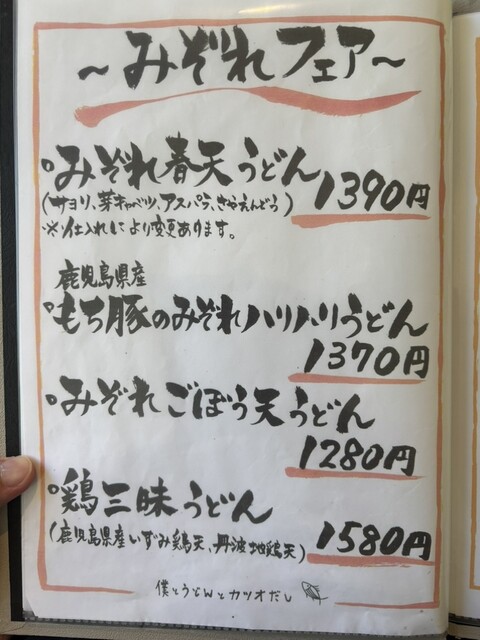 ～みぞれフェア～
・みぞれ春天うどん 1390円
(サヨリ、芽キャベツ、アスパラ、きぬえんどう)
※仕入れにより変更あります。
鹿児島県産
・もち豚のみぞれハリハリうどん
1370円
・みぞれごぼう天うどん
1280円
・鶏三昧うどん
(鹿児島県産いずみ鶏天、丹波地鶏天) 1580円
僕とうどんとカツオだし